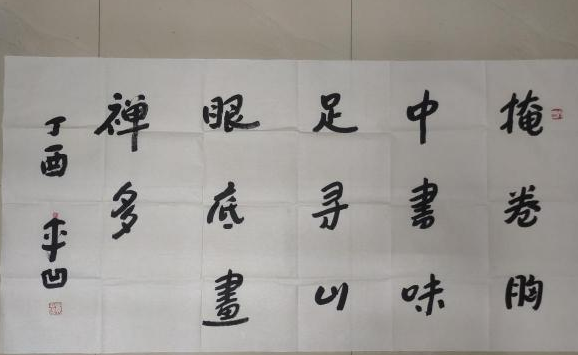 掩卷胸
中書味
足寻山
眼底畫
禅多
丁酉 平凹